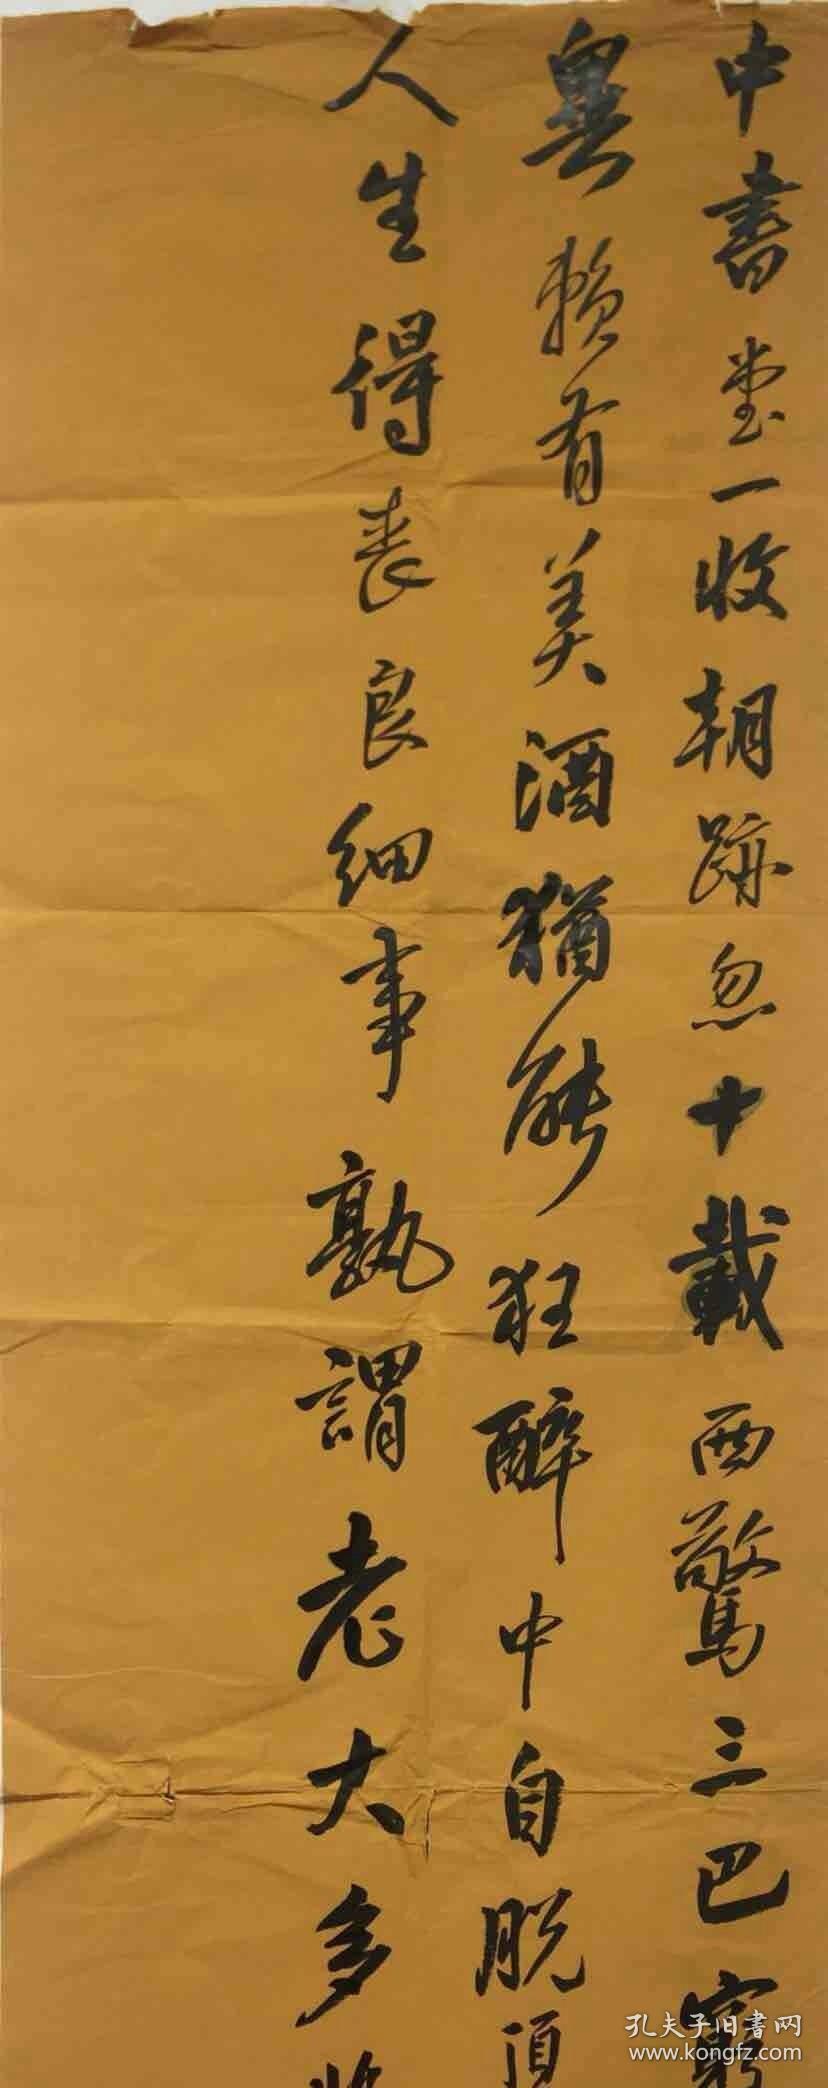 中書堂一收朝跡忽十載西驚三巴窮
粵賴有美酒猶能狂醉中自脫頂
人生得喪良細事孰謂老大多
孔夫子旧書网
www.kongfz.com